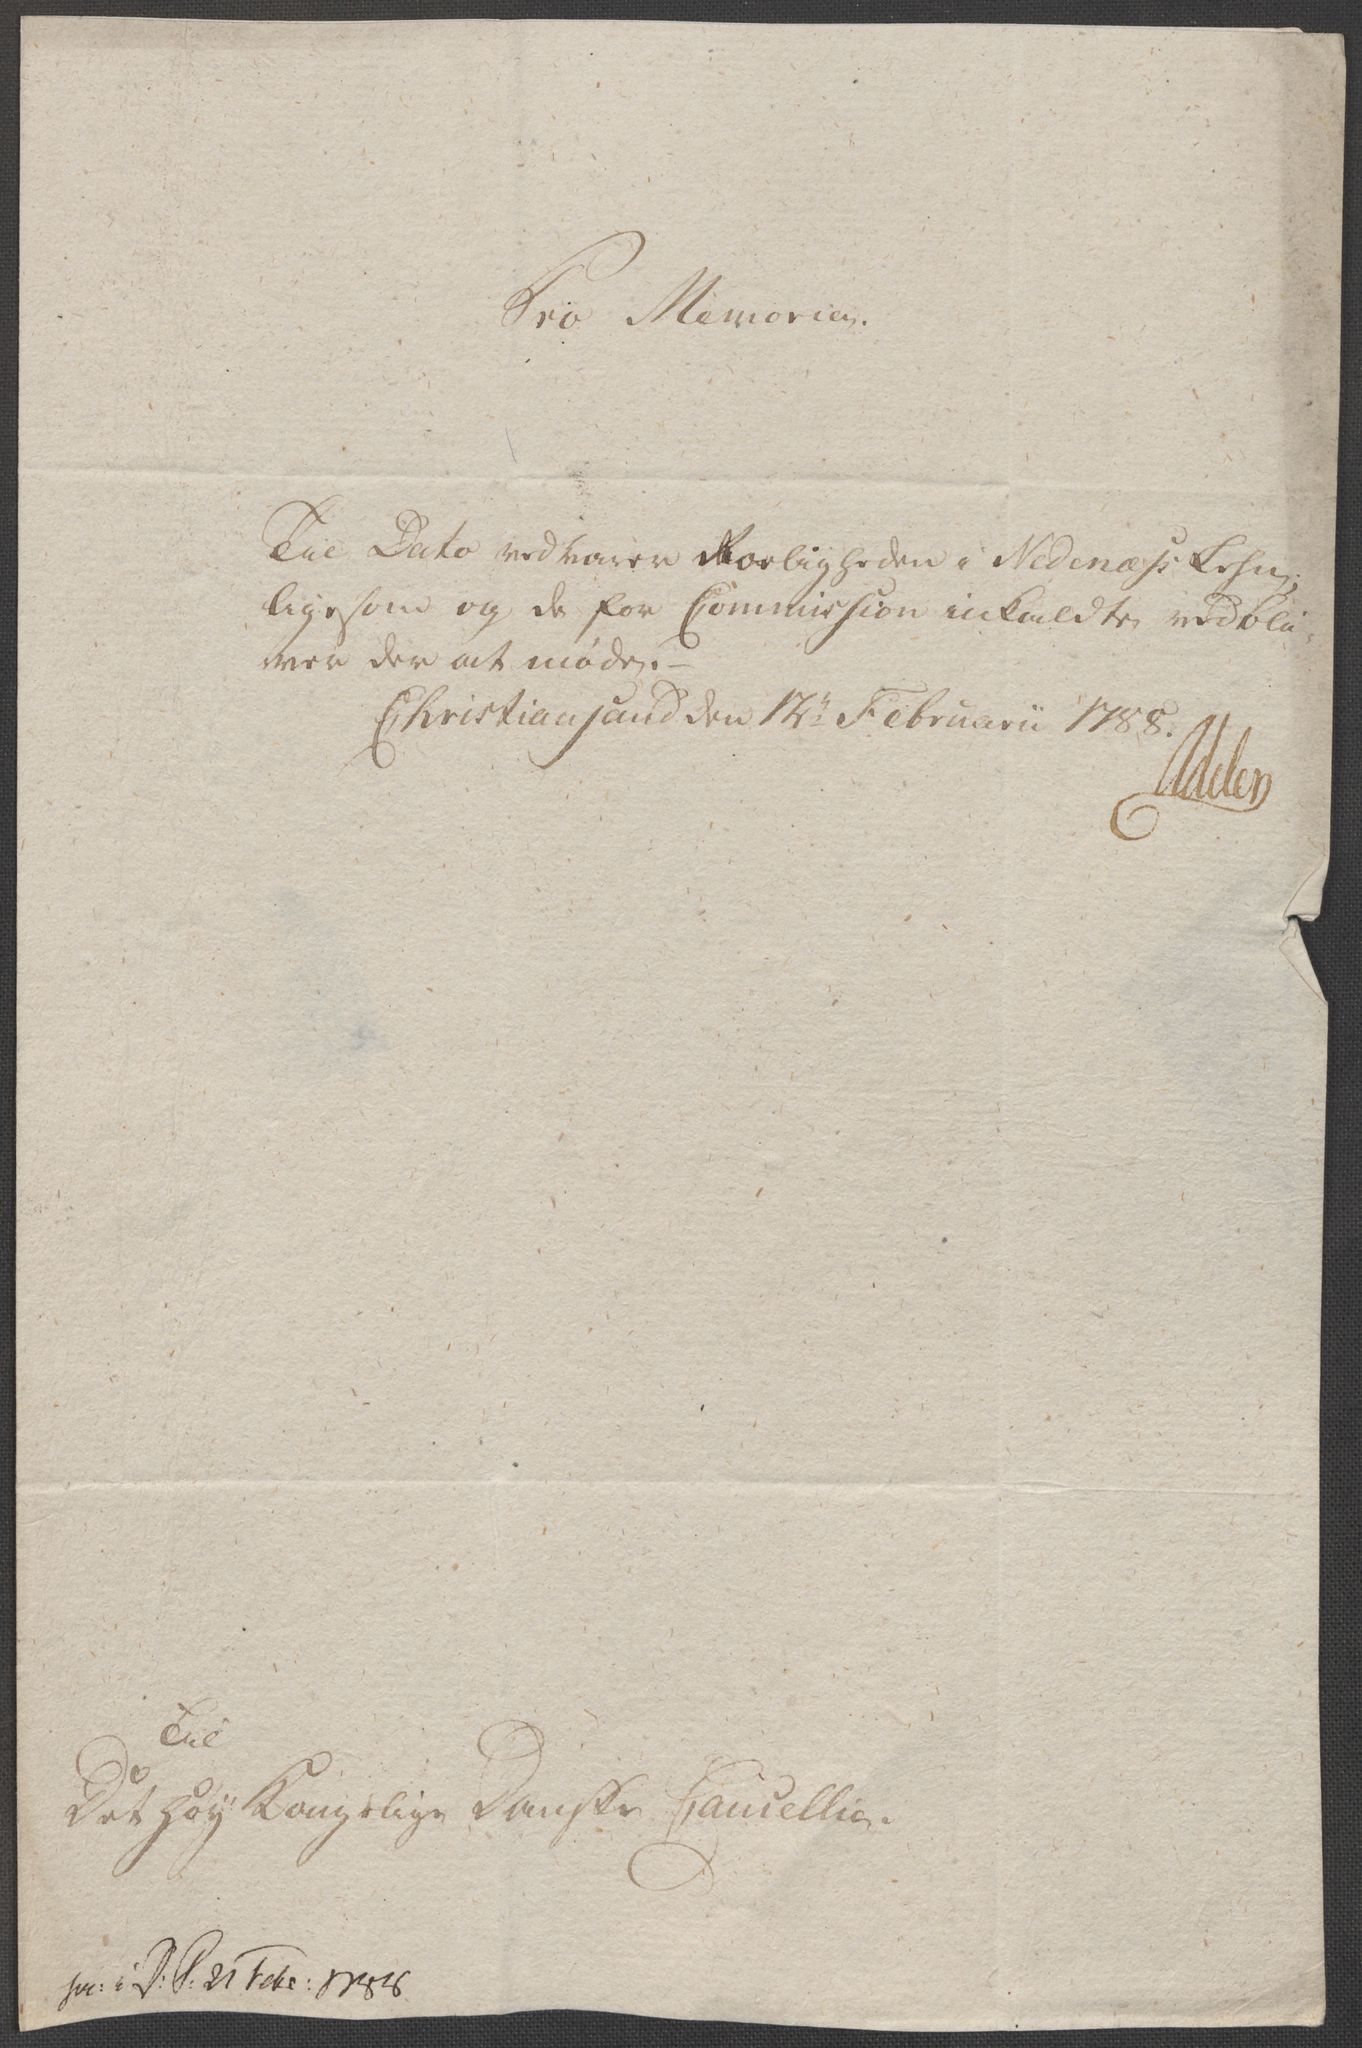 Pro Memoria.
Til Dato vedvarer Roeligheden i Nedenæss Lehn,
ligesom og de for Commission inkaldte vedbli-
ver der at møde. —
Christiansand den 12te Februarii 1788.
Adeler
Til
Det høy Kongelige Danske Cancellie.
i D: P: 21 Febr: 1788